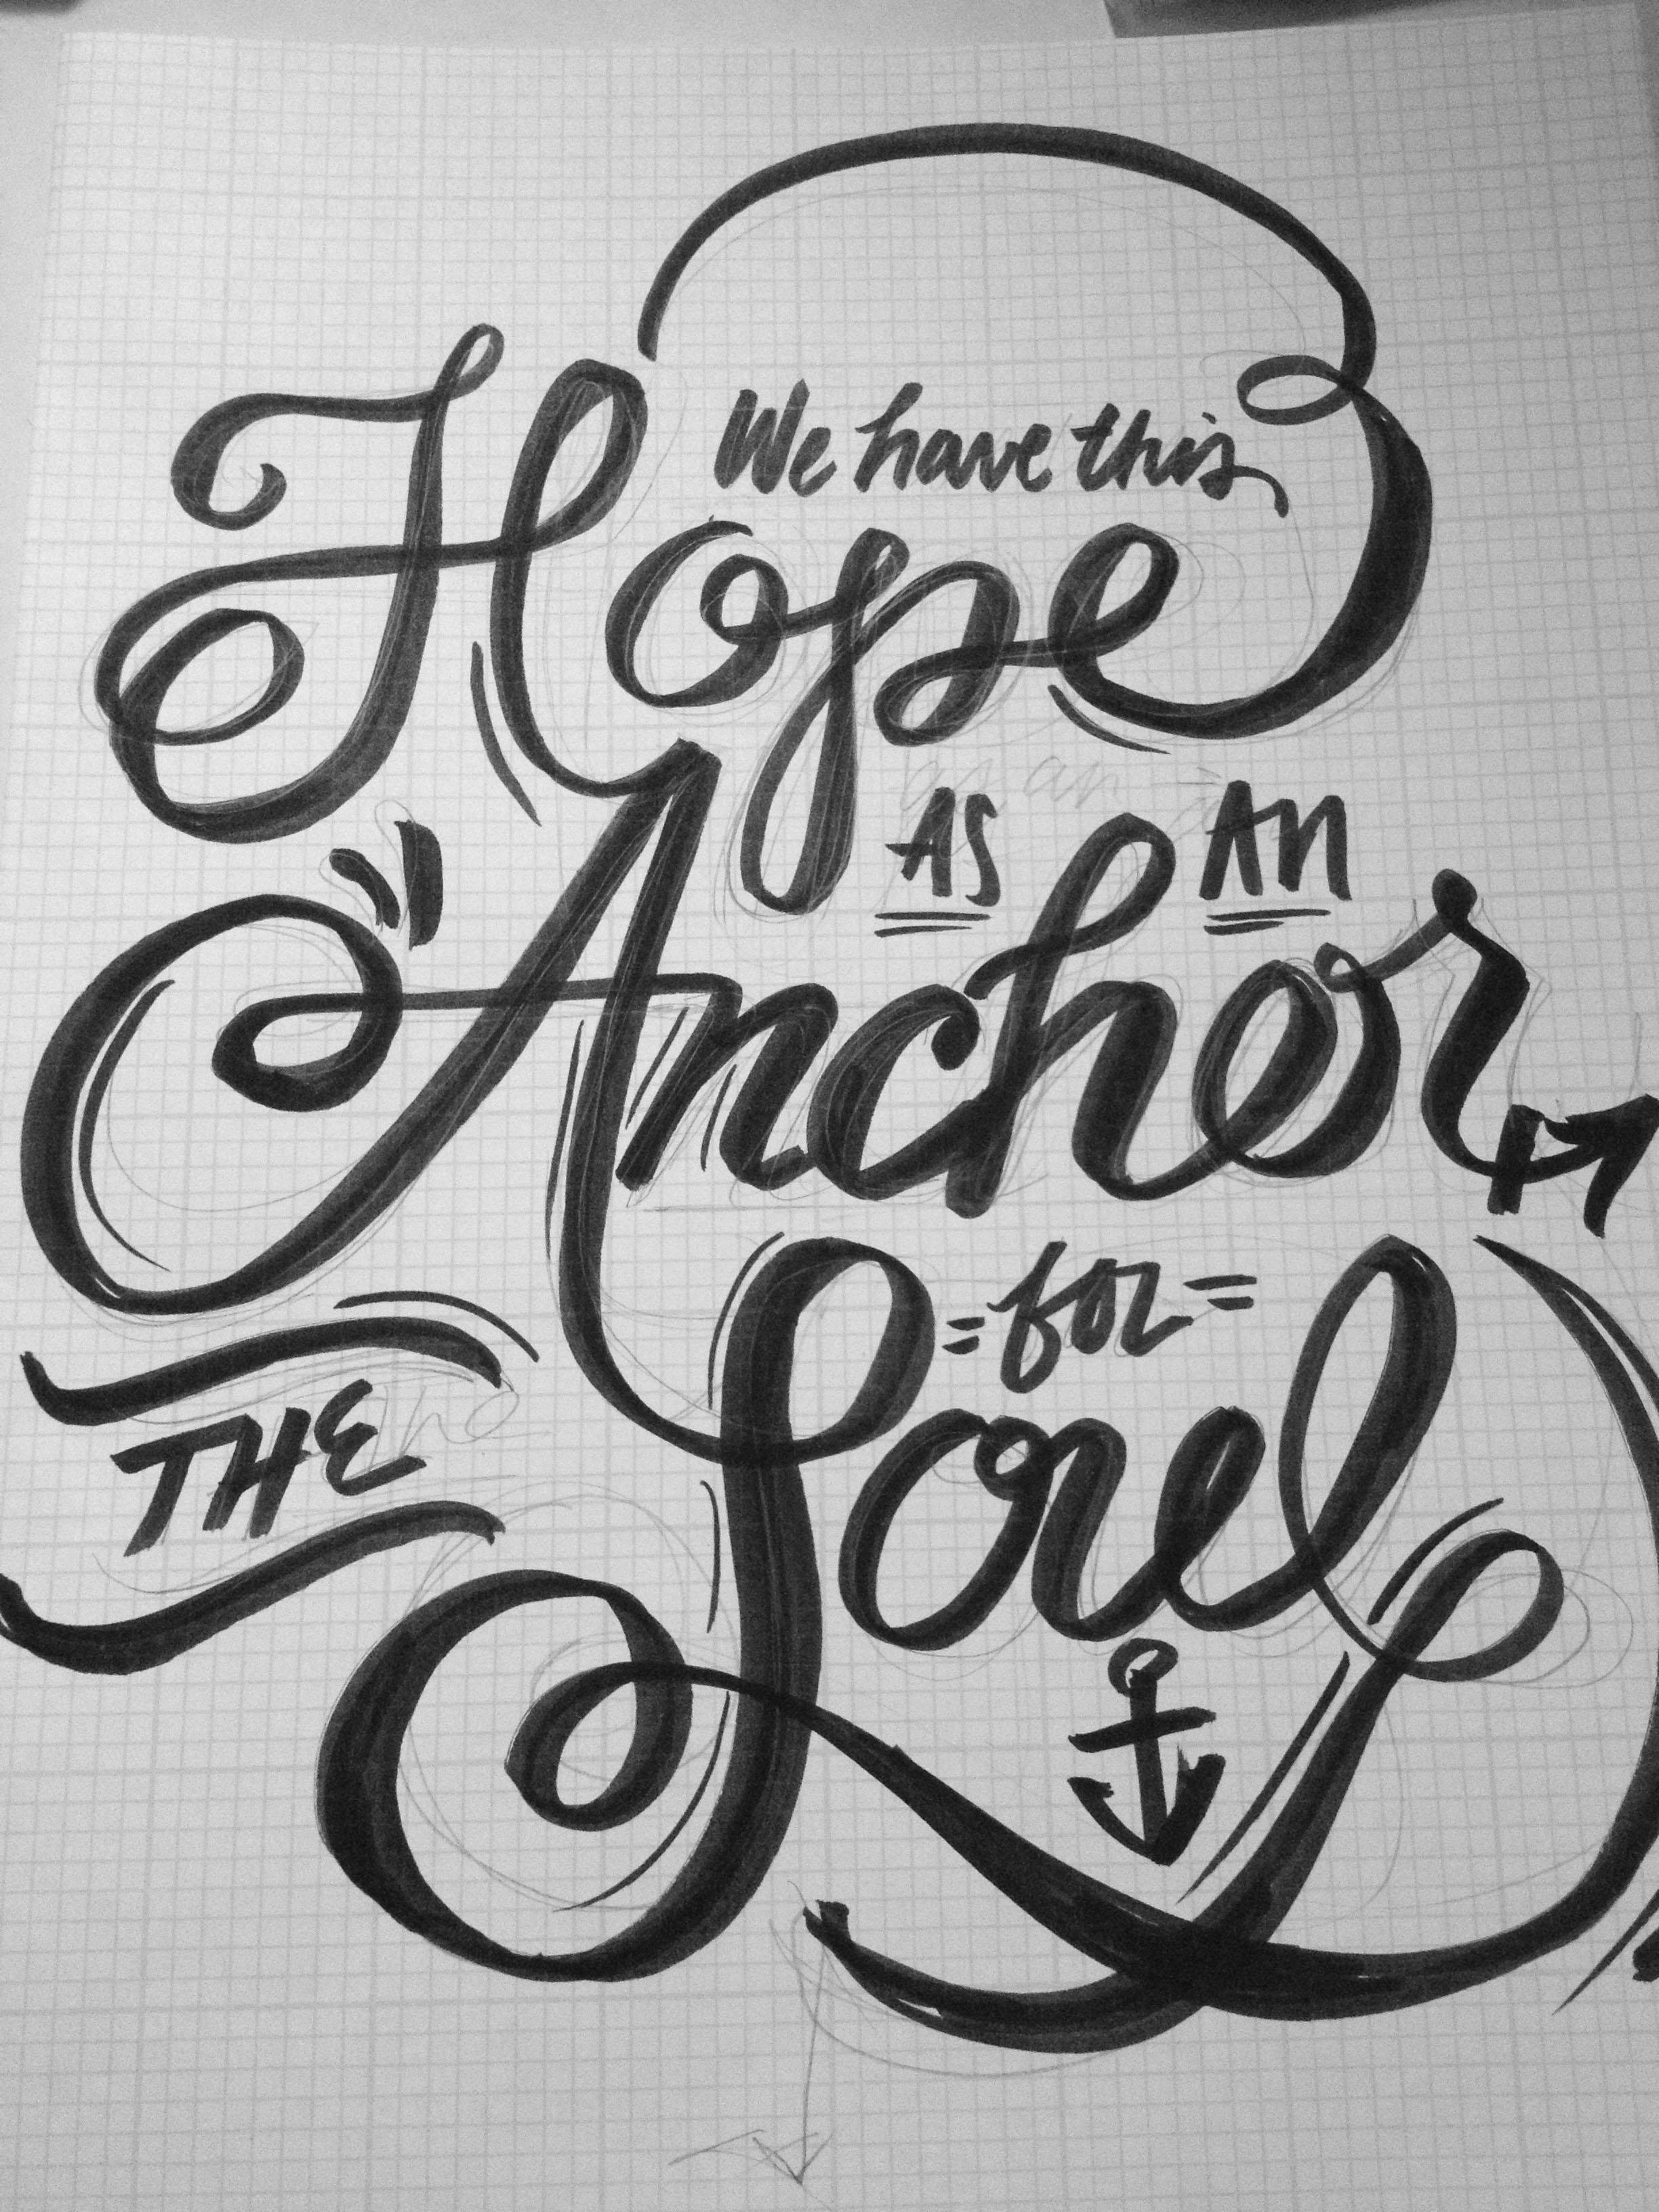 We have this
Hope
AS AN
Anchor
for
THE
Soul